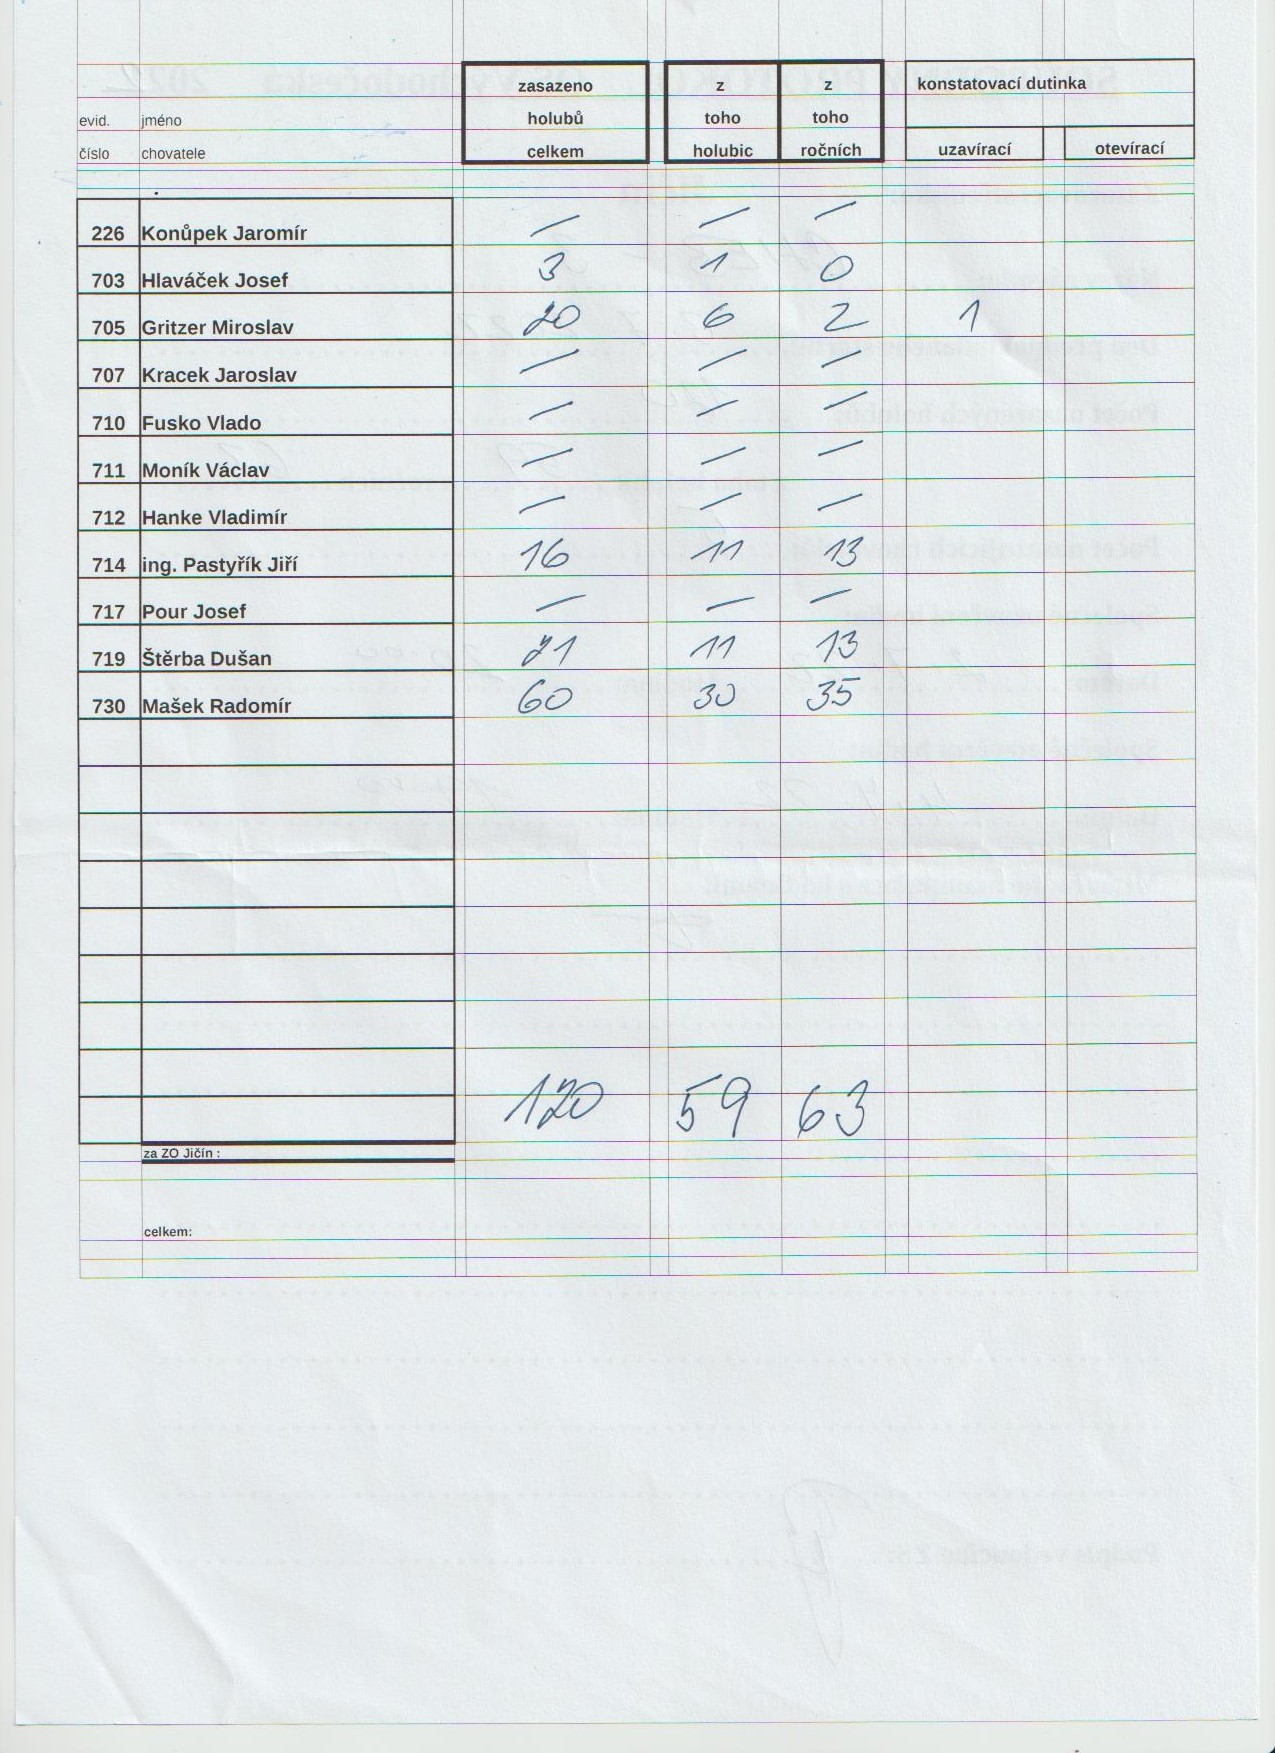 zasazeno z z konstatovací dutinka
evid. jméno holubů toho toho
číslo chovatele celkem holubic ročních uzavírací otevírací
226 Konůpek Jaromír — — —
703 Hlaváček Josef 3 1 0
705 Gritzer Miroslav 20 6 2 1
707 Kracek Jaroslav — — —
710 Fusko Vlado — — —
711 Moník Václav — — —
712 Hanke Vladimír — — —
714 ing. Pastyřík Jiří 16 11 13
717 Pour Josef — — —
719 Štěrba Dušan 21 11 13
730 Mašek Radomír 60 30 35
120 59 63
za ZO Jičín :
celkem: